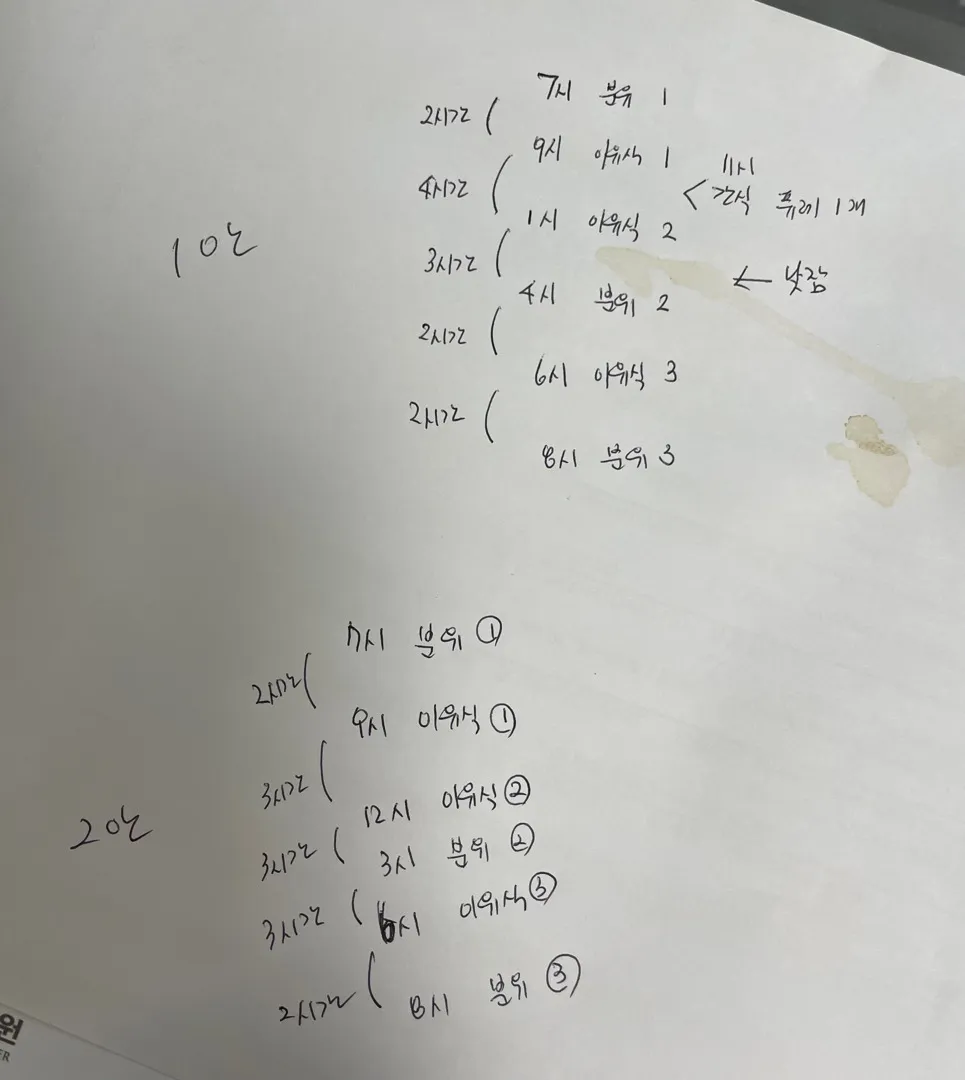 7시 분유 1
2시간
9시 이유식 1
11시
4시간
간식 퓨레 1개
1시 이유식 2
1안
3시간
낮잠
4시 분유 2
2시간
6시 이유식 3
2시간
8시 분유 3
7시 분유 ①
2시간
9시 이유식 ①
3시간
12시 이유식 ②
2안
3시간
3시 분유 ②
3시간
6시 이유식 ③
2시간
8시 분유 ③
원
ER